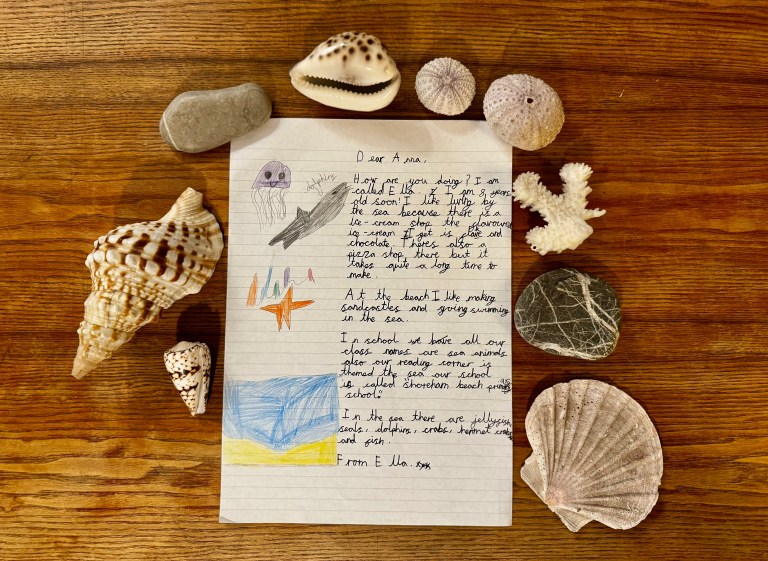 Dear Anna,
dolphins
How are you doing? I am
called Ella. I am 8 years
old soon! I like living by
the sea because there is a
ice-cream shop the
ice-cream I get is and
chocolate. Theres also a
pizza shop there but it
takes quite a long time to
make.
At the beach I like making
sandcastles and going swimming
in the sea.
In school we have all our
class names are sea animals
also our reading corner is
themed the sea our school
is called "Shoreham beach
school."
In the sea there are jellyfish,
seals, dolphins, crabs, hermet crabs
and fish.
From Ella. xxx